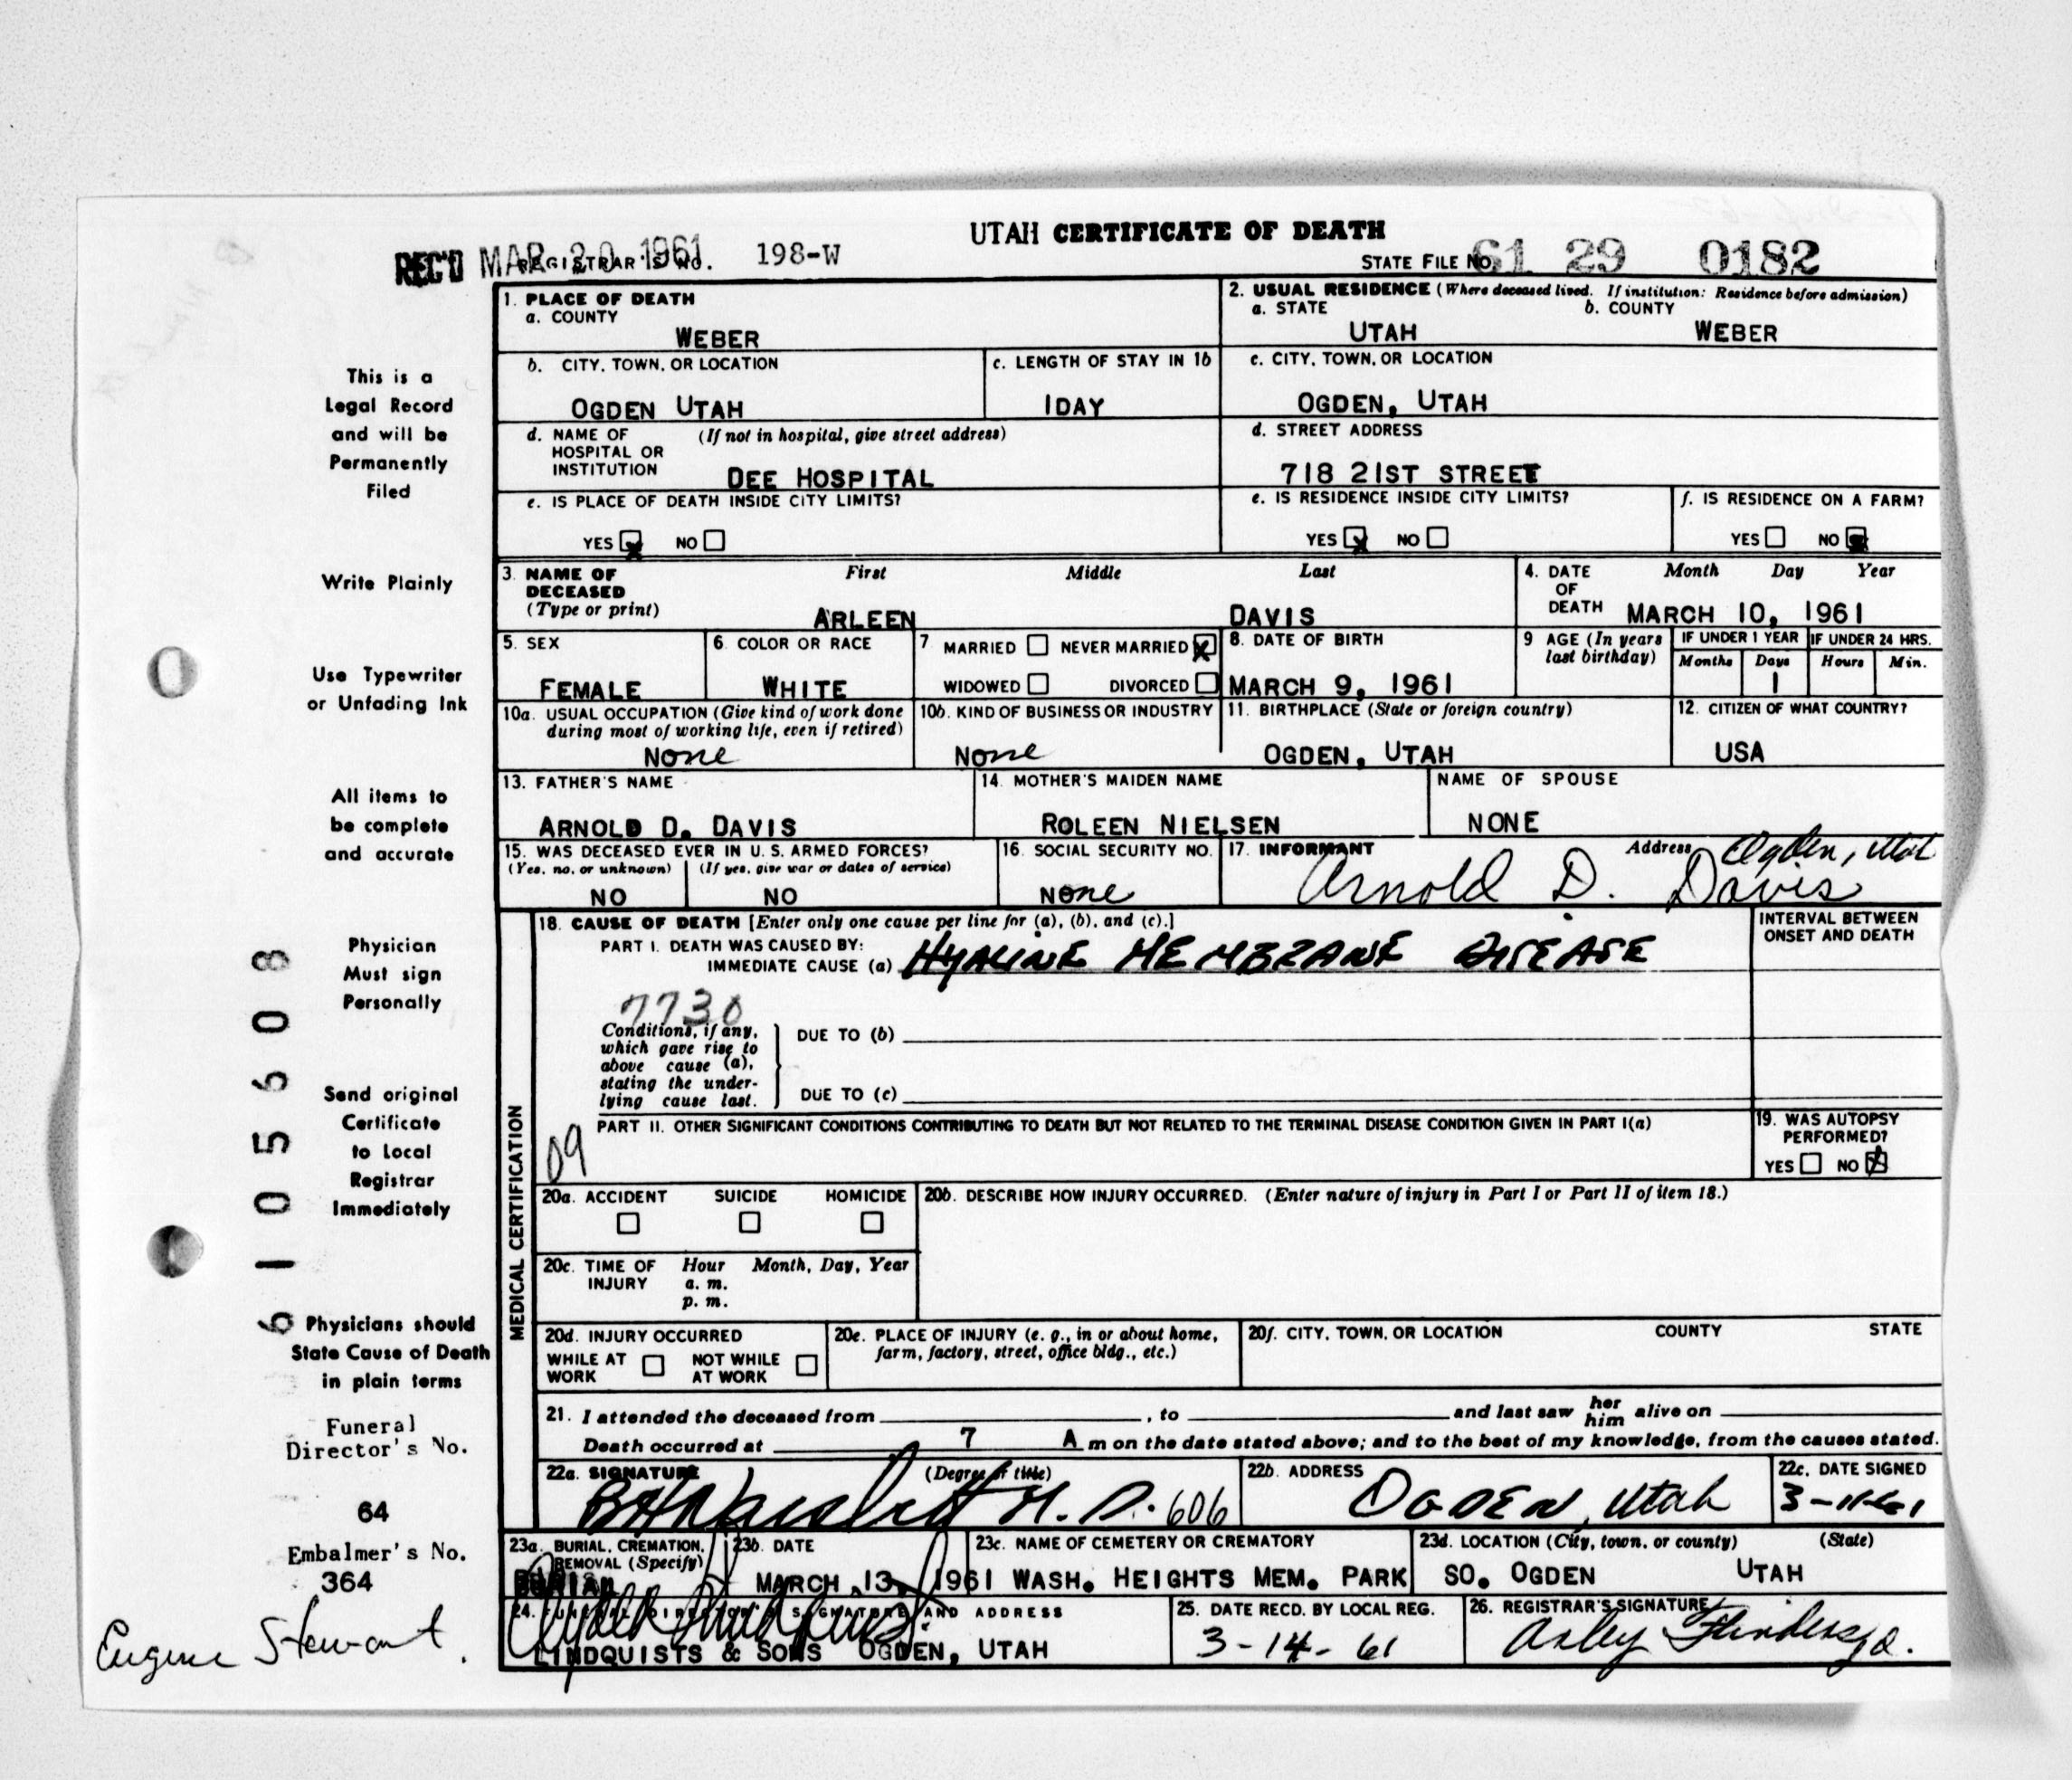 UTAH CERTIFICATE OF DEATH
REC'D MAR 20 1961 REGISTRAR'S NO. 198-W STATE FILE NO. 61 29 0182
1. PLACE OF DEATH
a. COUNTY
WEBER
2. USUAL RESIDENCE (Where deceased lived. If institution: Residence before admission)
a. STATE b. COUNTY
UTAH WEBER
b. CITY, TOWN, OR LOCATION
OGDEN UTAH
c. LENGTH OF STAY IN 1b
1DAY
c. CITY, TOWN, OR LOCATION
OGDEN, UTAH
d. NAME OF (If not in hospital, give street address)
HOSPITAL OR
INSTITUTION
DEE HOSPITAL
d. STREET ADDRESS
718 21ST STREET
e. IS PLACE OF DEATH INSIDE CITY LIMITS?
YES NO
e. IS RESIDENCE INSIDE CITY LIMITS?
YES NO
f. IS RESIDENCE ON A FARM?
YES NO
3. NAME OF First Middle Last
DECEASED
(Type or print)
ARLEEN DAVIS
4. DATE Month Day Year
OF
DEATH MARCH 10, 1961
5. SEX
FEMALE
6. COLOR OR RACE
WHITE
7 MARRIED NEVER MARRIED X
WIDOWED DIVORCED
8. DATE OF BIRTH
MARCH 9, 1961
9 AGE (In years
last birthday)
IF UNDER 1 YEAR IF UNDER 24 HRS.
Months Days Hours Min.
1
10a. USUAL OCCUPATION (Give kind of work done
during most of working life, even if retired)
None
10b. KIND OF BUSINESS OR INDUSTRY
None
11. BIRTHPLACE (State or foreign country)
OGDEN, UTAH
12. CITIZEN OF WHAT COUNTRY?
USA
13. FATHER'S NAME
ARNOLD D. DAVIS
14. MOTHER'S MAIDEN NAME
ROLEEN NIELSEN
NAME OF SPOUSE
NONE
15. WAS DECEASED EVER IN U. S. ARMED FORCES?
(Yes, no, or unknown) (If yes, give war or dates of service)
NO NO
16. SOCIAL SECURITY NO.
None
17. INFORMANT Address Ogden, Utah
Arnold D. Davis
18. CAUSE OF DEATH [Enter only one cause per line for (a), (b), and (c).]
PART I. DEATH WAS CAUSED BY:
IMMEDIATE CAUSE (a) HYALINE MEMBRANE DISEASE
INTERVAL BETWEEN
ONSET AND DEATH
7730
Conditions, if any,
which gave rise to
above cause (a),
stating the under-
lying cause last.
DUE TO (b)
DUE TO (c)
PART II. OTHER SIGNIFICANT CONDITIONS CONTRIBUTING TO DEATH BUT NOT RELATED TO THE TERMINAL DISEASE CONDITION GIVEN IN PART I(a)
09
19. WAS AUTOPSY
PERFORMED?
YES NO X
20a. ACCIDENT SUICIDE HOMICIDE
20b. DESCRIBE HOW INJURY OCCURRED. (Enter nature of injury in Part I or Part II of item 18.)
20c. TIME OF Hour Month, Day, Year
INJURY a. m.
p. m.
20d. INJURY OCCURRED
WHILE AT NOT WHILE
WORK AT WORK
20e. PLACE OF INJURY (e. g., in or about home,
farm, factory, street, office bldg., etc.)
20f. CITY, TOWN, OR LOCATION COUNTY STATE
21. I attended the deceased from , to and last saw her him alive on
Death occurred at 7 A m on the date stated above; and to the best of my knowledge, from the causes stated.
22a. SIGNATURE (Degree or title)
M. D. 606
22b. ADDRESS
OGDEN, Utah
22c. DATE SIGNED
3-11-61
23a. BURIAL, CREMATION,
REMOVAL (Specify)
BURIAL
23b. DATE
MARCH 13, 1961
23c. NAME OF CEMETERY OR CREMATORY
WASH. HEIGHTS MEM. PARK
23d. LOCATION (City, town, or county) (State)
SO. OGDEN UTAH
24. FUNERAL DIRECTOR'S SIGNATURE AND ADDRESS
LINDQUISTS & SONS OGDEN, UTAH
25. DATE RECD. BY LOCAL REG.
3-14-61
26. REGISTRAR'S SIGNATURE
MEDICAL CERTIFICATION
This is a
Legal Record
and will be
Permanently
Filed
Write Plainly
Use Typewriter
or Unfading Ink
All items to
be complete
and accurate
Physician
Must sign
Personally
Send original
Certificate
to Local
Registrar
Immediately
Physicians should
State Cause of Death
in plain terms
Funeral
Director's No.
64
Embalmer's No.
364
Eugene Stewart
6105608